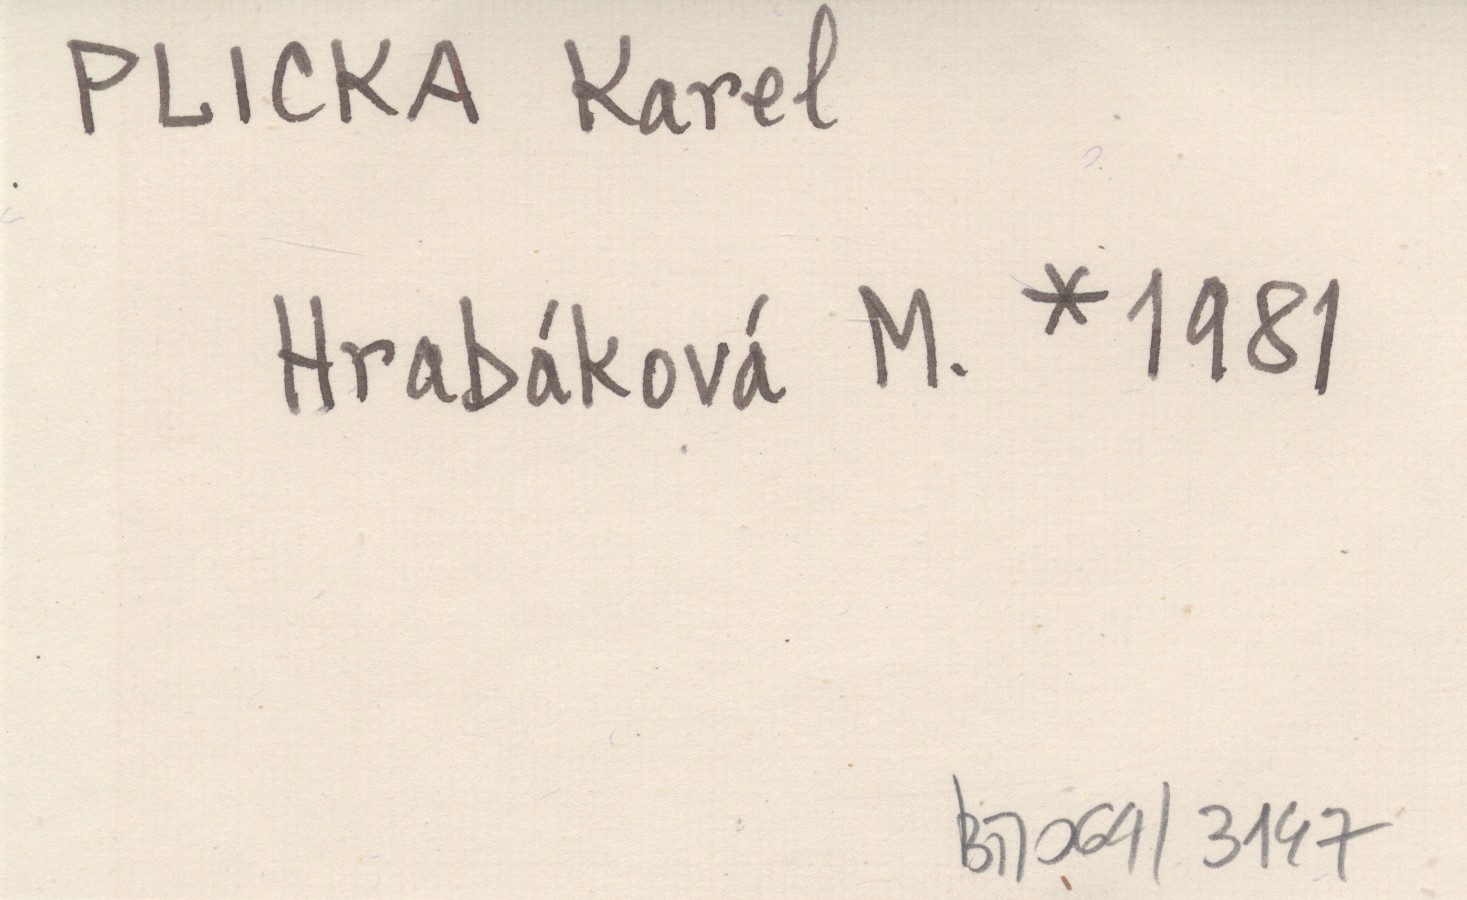 PLICKA Karel
Hrabáková M. *1981
3147